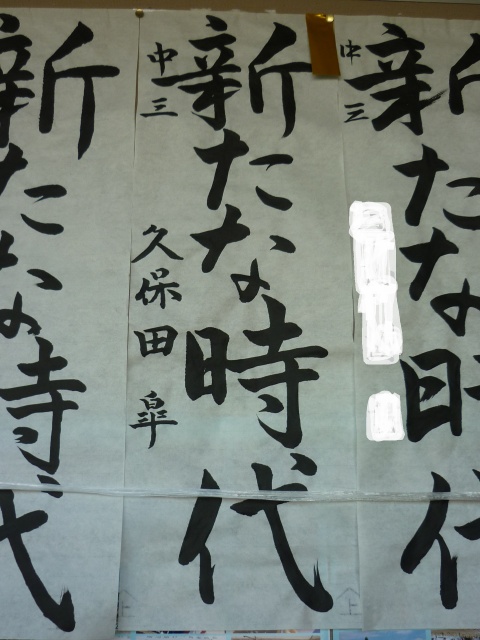 新たな時代
中三
新たな時代
中三 久保田 皐
新たな時代